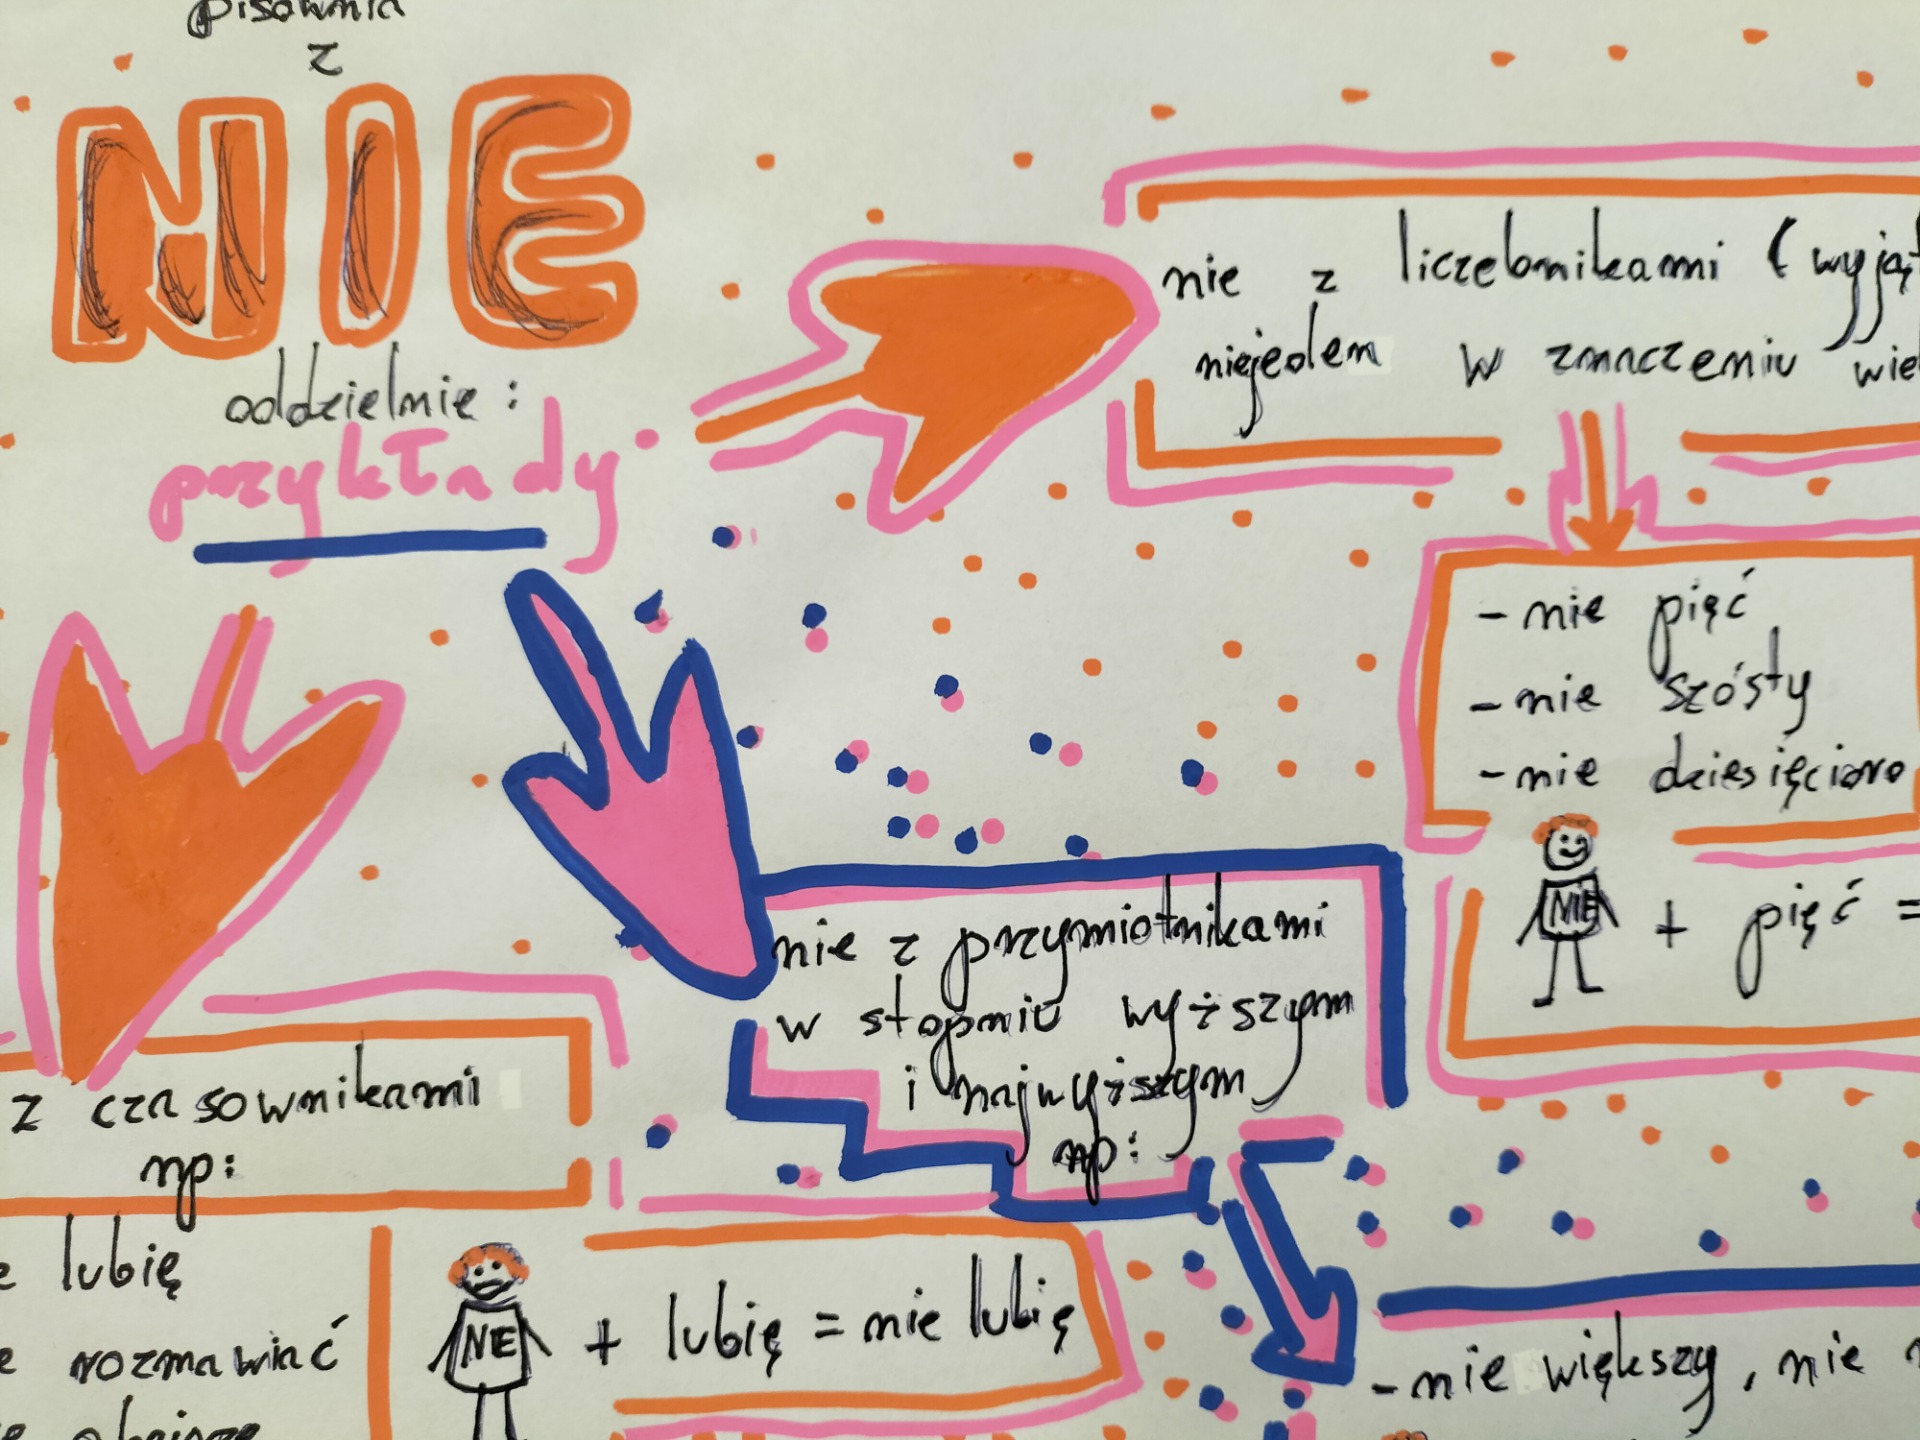 pisownia
z
NIE
oddzielnie:
przykłady
nie z liczebnikami (wyjąt
niejeden w znaczeniu wiel
- nie pięć
- nie szósty
- nie dziesięcioro
NIE + pięć =
nie z przymiotnikami
w stopniu wyższym
i najwyższym
np:
z czasownikami
np:
lubię
rozmawiać
NIE + lubię = nie lubię
- nie większy, nie